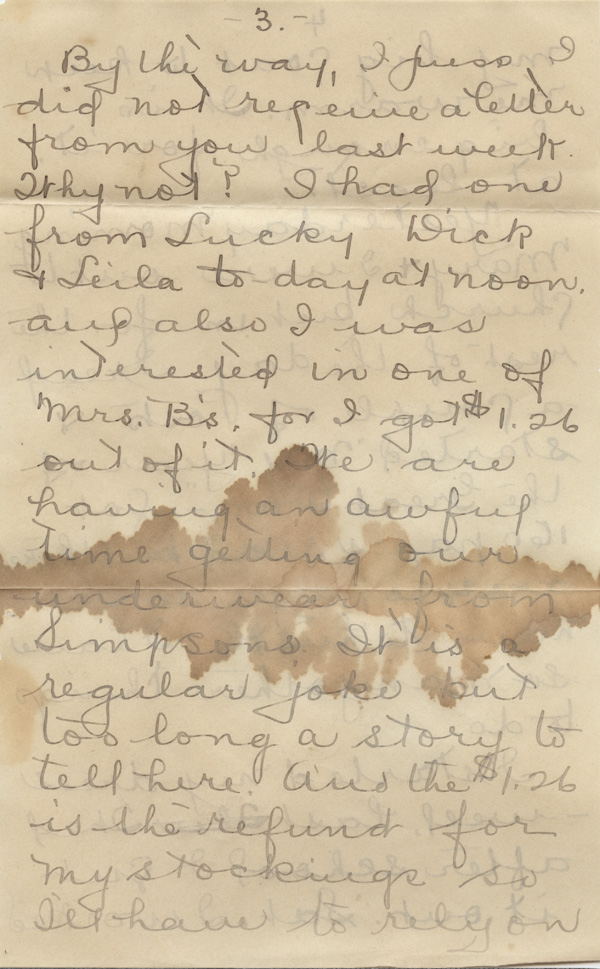 - 3. -
By the way, I guess I
did not receive a letter
from you last week.
Why not? I had one
from Lucky Dick
& Leila to-day at noon.
and also I was
interested in one of
Mrs. B's. for I got $1.26
out of it. We are
having an awful
time getting our
underwear from
Simpsons. It is a
regular joke but
too long a story to
tell here. And the $1.26
is the refund for
my stockings so
I'll have to rely on